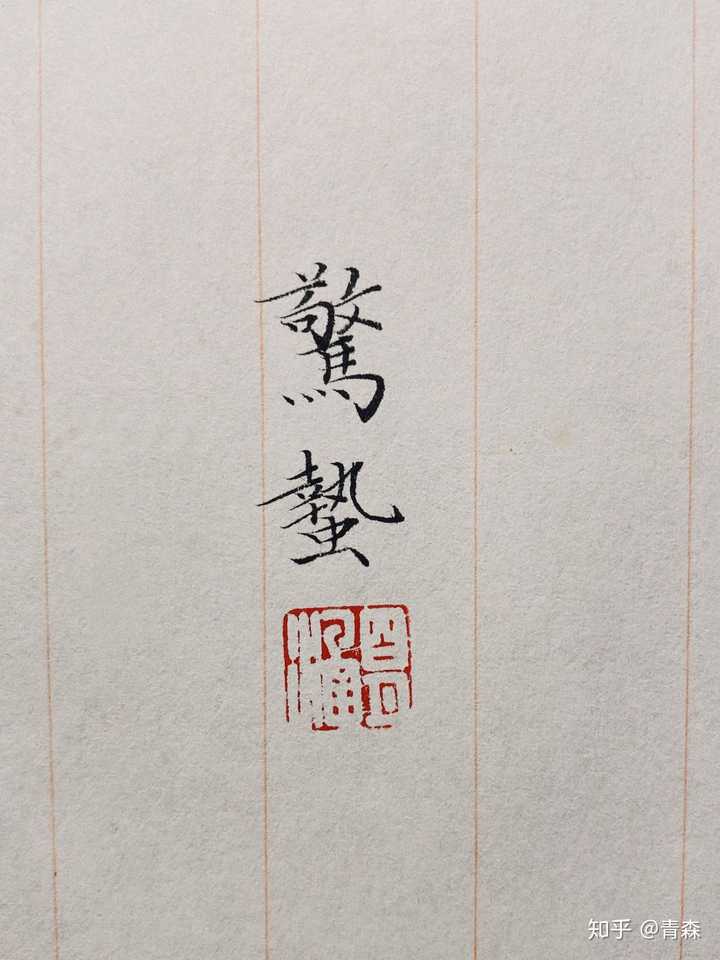 驚蟄
知乎 @青森